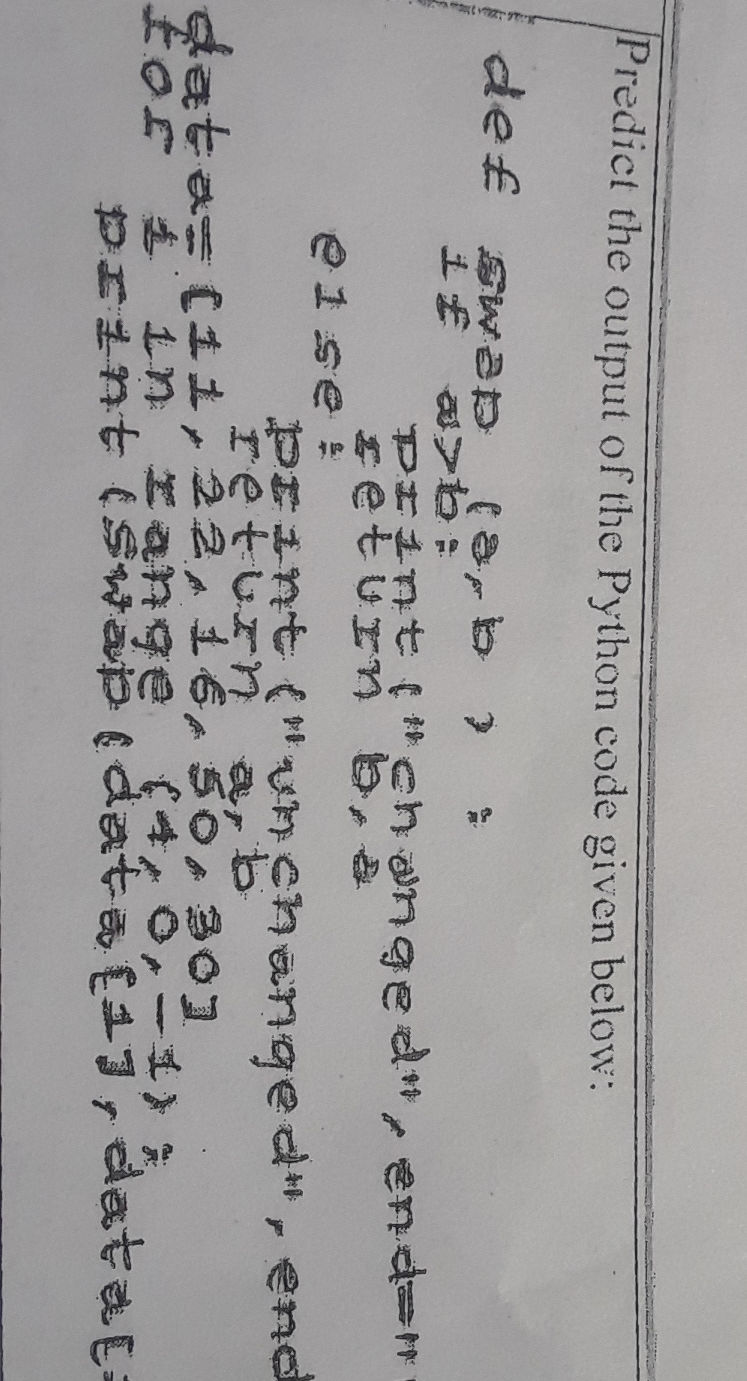 Predict the output of the Python code given below:
def swap (a,b ) :
if a>b:
print ("changed", end="
return b,a
else:
print ("unchanged", end
return a,b
data=[11,22,16,50,30]
for i in range (4,0,-1):
print (swap(data[i],data[